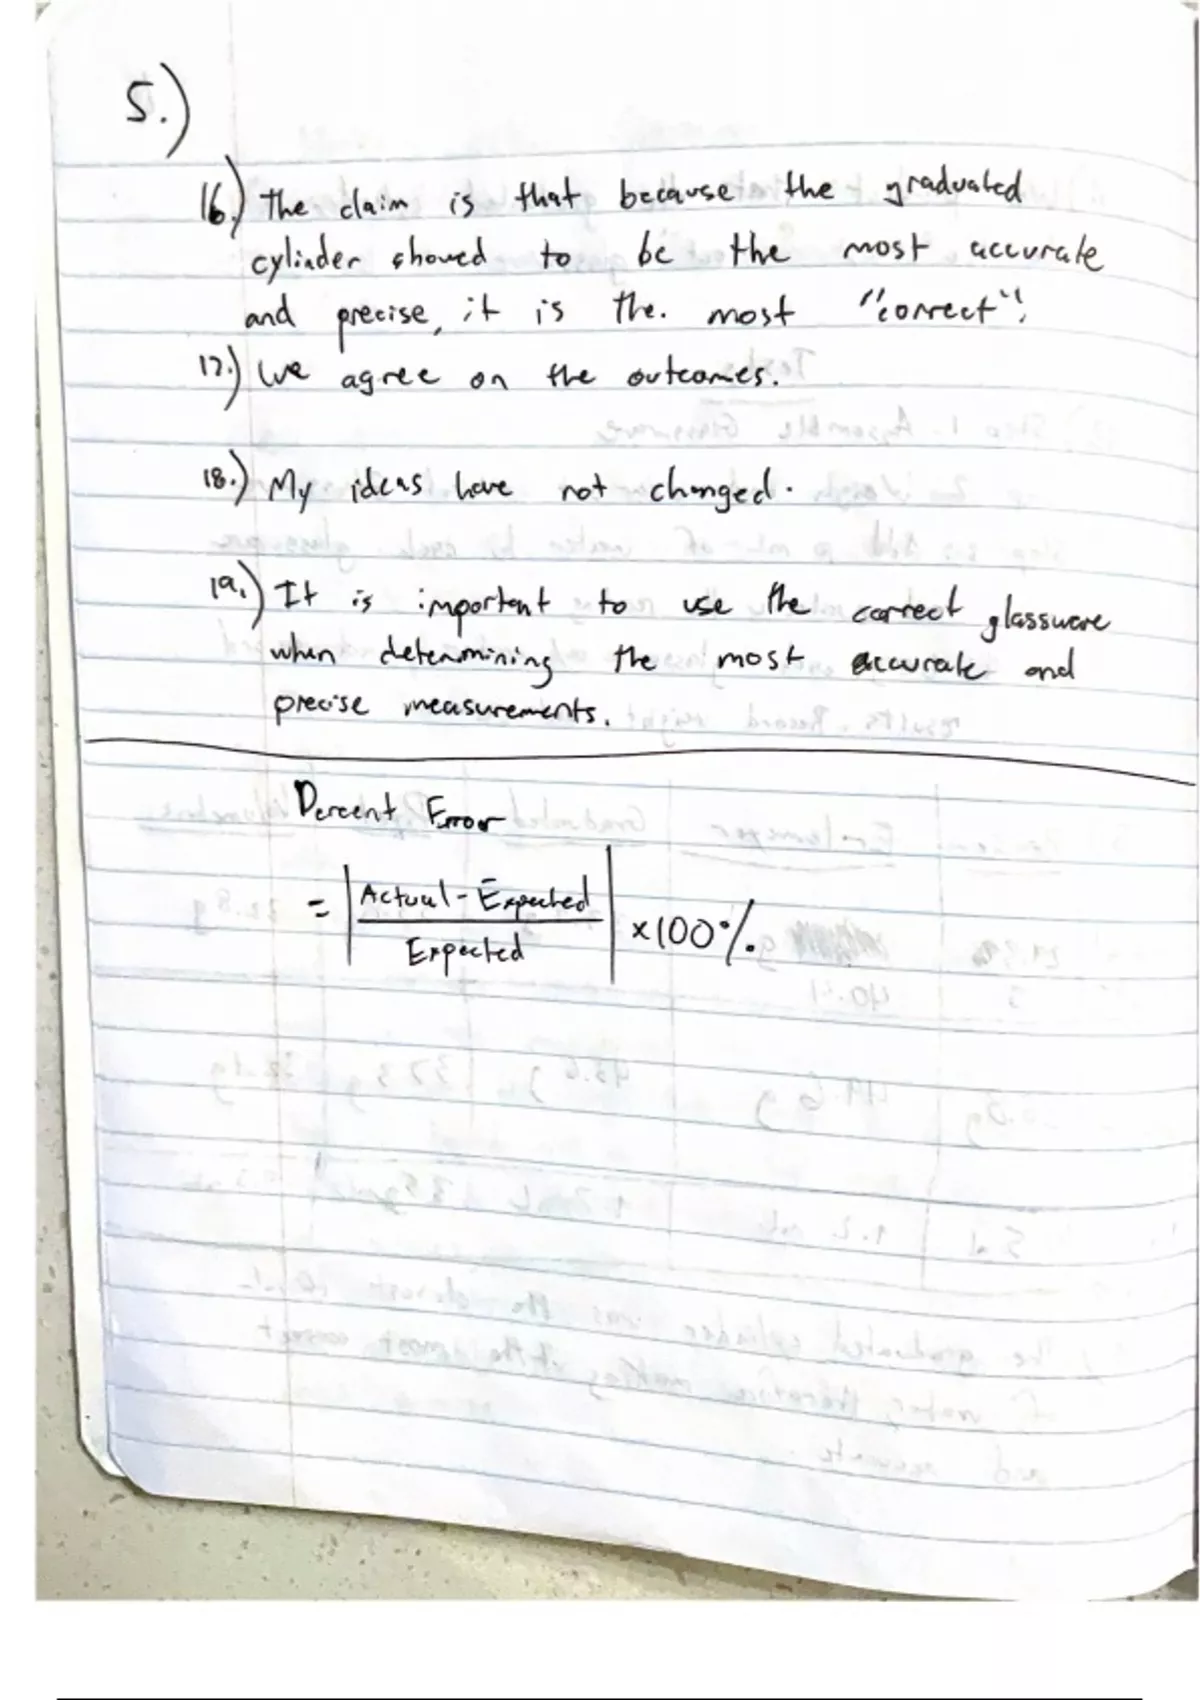 5.)
16.) The claim is that because the graduated
cylinder showed to be the most accurate
and precise, it is the. most "correct".
17.) We agree on the outcomes.
18.) My ideas have not changed.
19.) It is important to use the correct glassware
when determining the most accurate and
precise measurements.
Percent Error
= | Actual - Expected
Expected | x100%